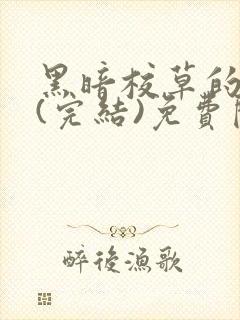 黑暗校草的
(完結)免費
醉後漁歌